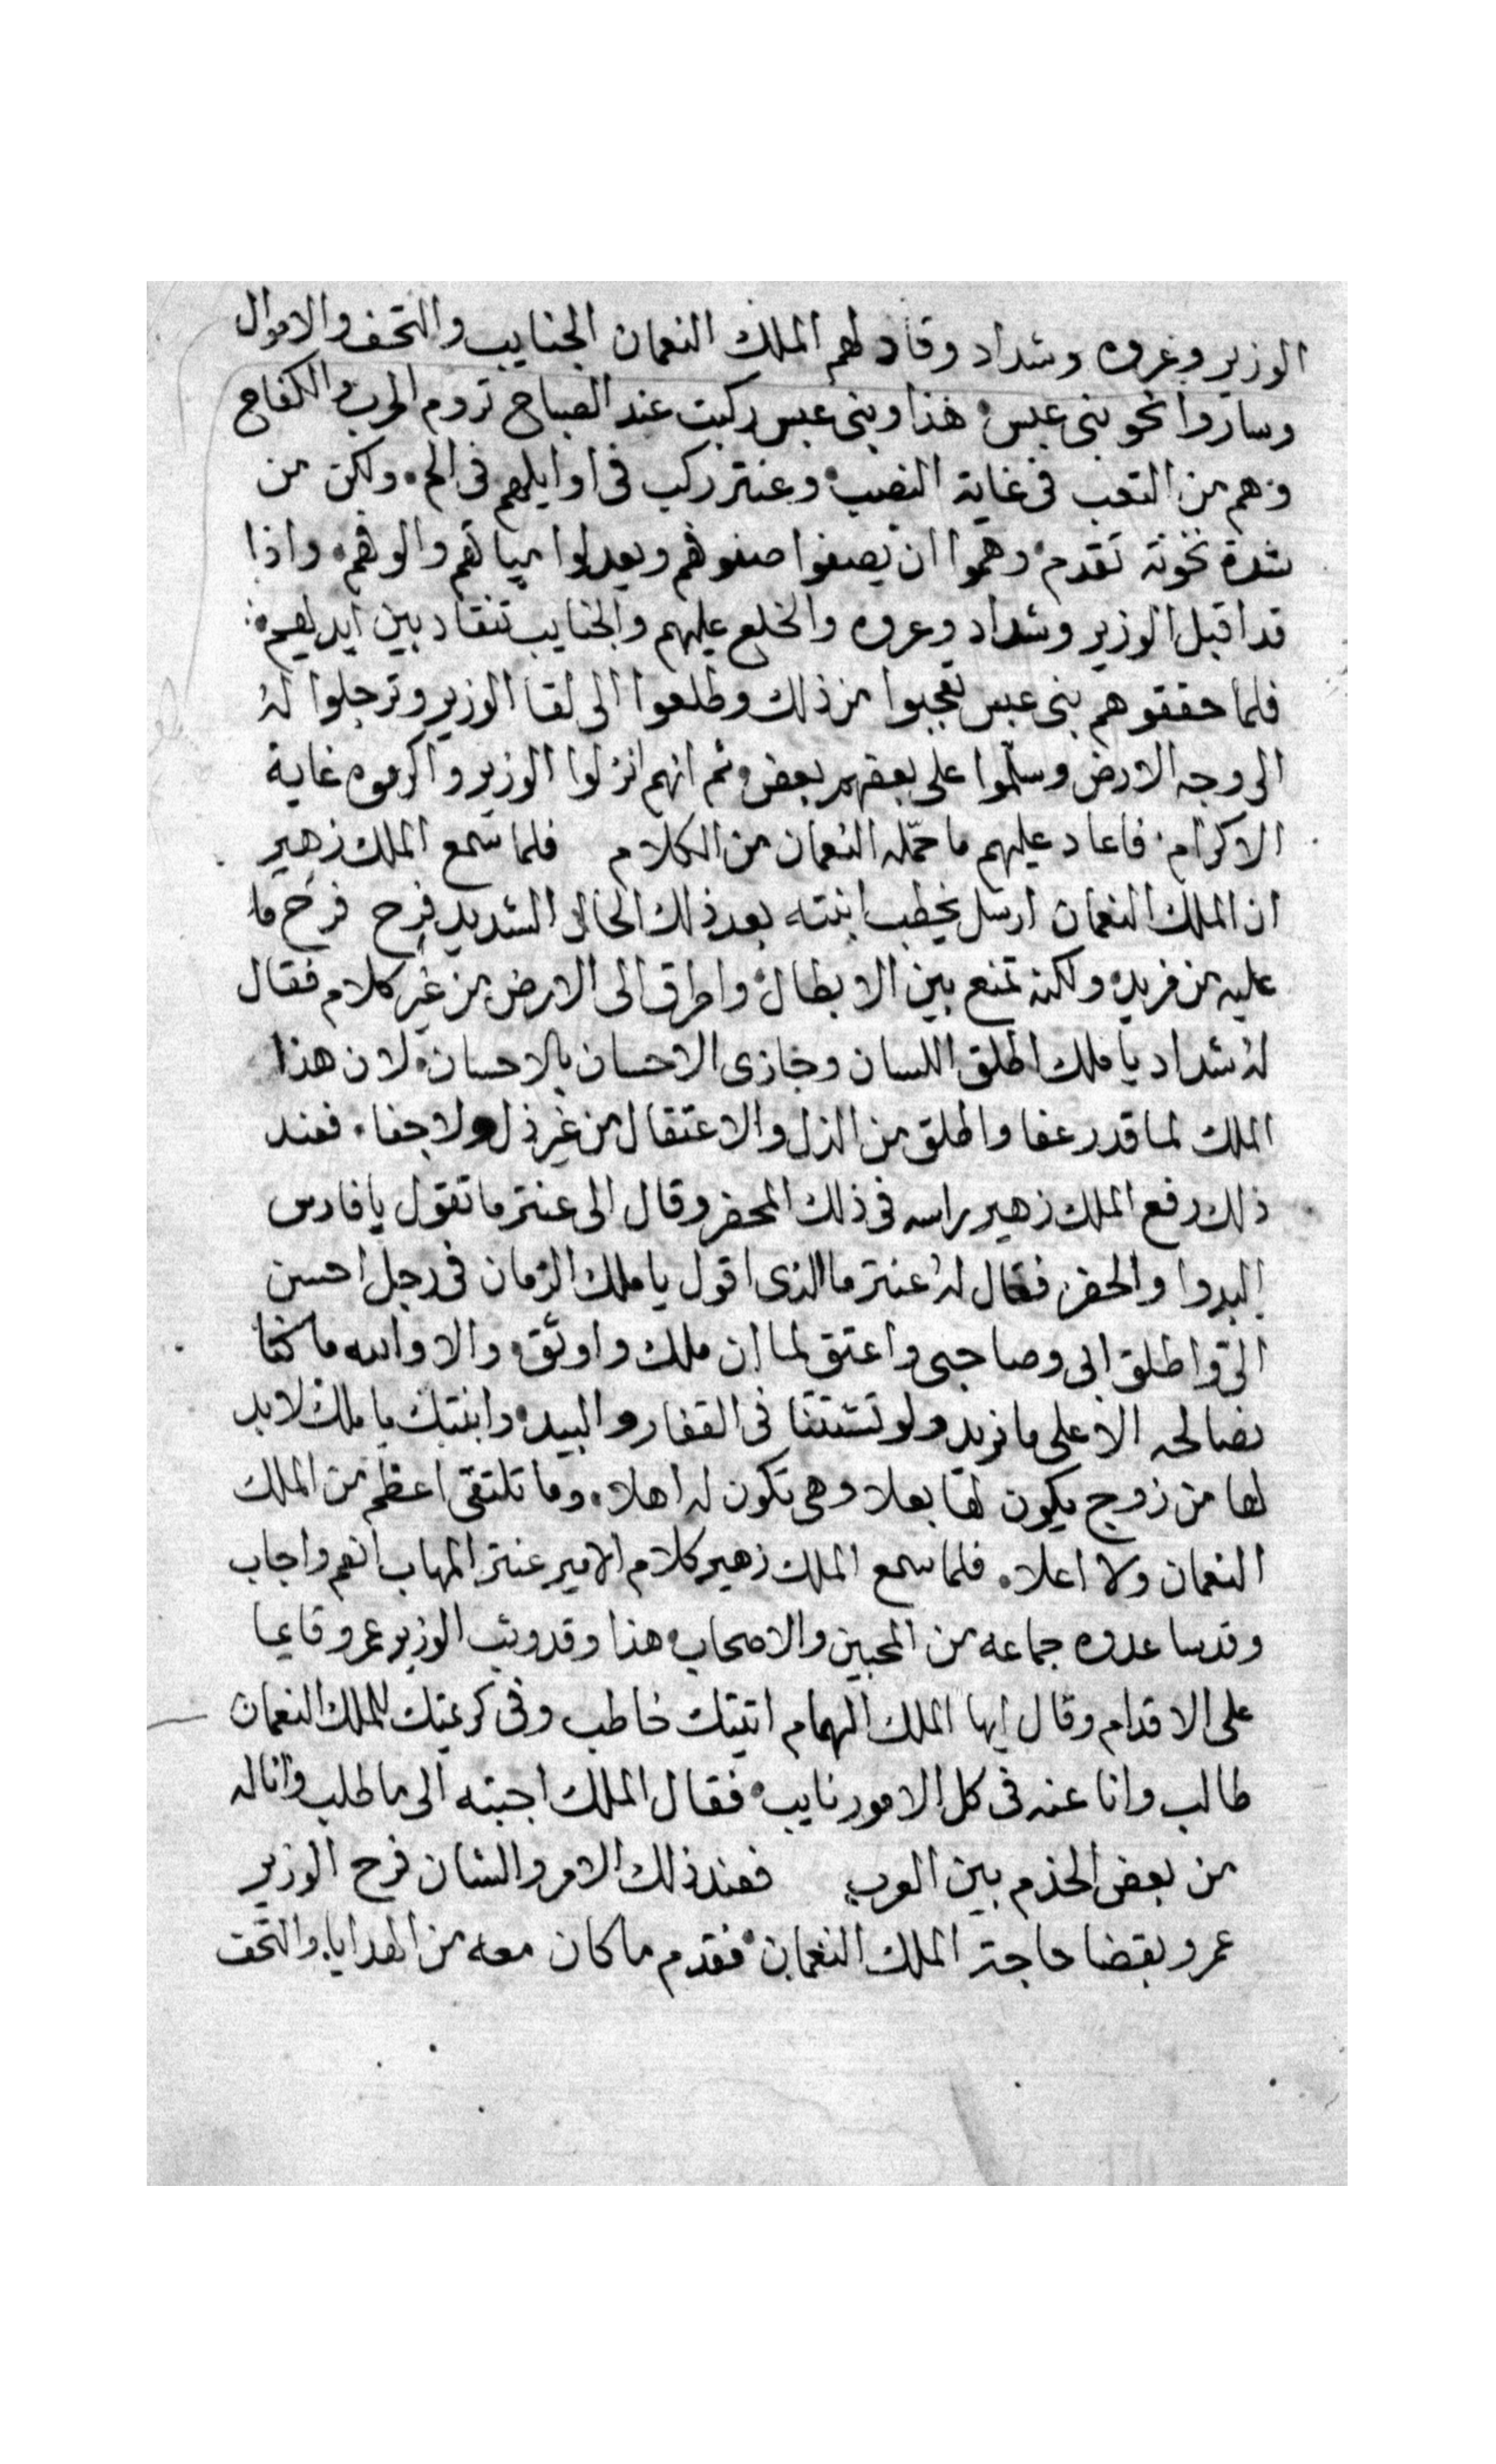 الوزير وعروه وشداد وقاد لهم الملك النعمان الجنايب والتحف والاموال
وساروا نحو بنى عبس هذا وبنى عبس ركبت عند الصباح تروم الحرب والكفاح
وهم من التعب فى غاية النصب وعنتر ركب فى اوايلهم فى الم ولكن من
شدة نخوته تقدم وهموا ان يصفوا صفوفهم ويعدلوا والوفهم واذا
قد اقبل الوزير وشداد وعروه والخلع عليهم والجنايب تنقاد بين ايديهم
فلما حققوهم بنى عبس تعجبوا من ذلك وطلعوا الى لقا الوزير وترجلوا له
الى وجه الارض وسلموا على بعضهم بعض ثم انهم انزلوا الوزير واكرموه غاية
الاكرام فاعاد عليهم ما حمّله النعمان من الكلام فلما سمع الملك زهير
ان الملك النعمان ارسل يخطب ابنته بعد ذلك الحال الشديد فرح فرح ما
عليه من فريد ولكنه تمنع بين الابطال واطرق الى الارض من غير كلام فقال
له شداد يا ملك اطلق اللسان وجازى الاحسان بالاحسان لان هذا
الملك لما قدر عفا واطلق من الذل والاعتقال من غير ذل ولا جفا فعند
ذلك رفع الملك زهير راسه فى ذلك المحضر وقال الى عنتر ما تقول يا فارس
البدوا والحضر فقال له عنتر ما الذى اقول يا ملك الزمان فى رجل احسن
الىّ واطلق ابى وصاحبى واعتق لما ان ملك واوثق والا والله ما كنا
نصالحه الا على ما نريد ولو تشتتنا فى القفار والبيد وابنتك يا ملك لا بد
لها من زوج يكون لها بعلا وهى تكون له اهلا وما تلتقى اعظم من الملك
النعمان ولا اعلا فلما سمع الملك زهير كلام الامير عنتر المهاب انعم واجاب
وقد ساعدوه جماعه من المحبين والاصحاب هذا وقد وثب الوزير عمرو قايما
على الاقدام وقال ايها الملك الهمام اتيتك خاطب وفى كريمتك للملك النعمان
طالب وانا عنه فى كل الامور نايب فقال الملك اجبته الى ما طلب وانا له
من بعض الخدم بين العرب فعند ذلك الامر والشان فرح الوزير
عمرو بقضا حاجة الملك النعمان فقدم ما كان معه من الهدايا والتحف